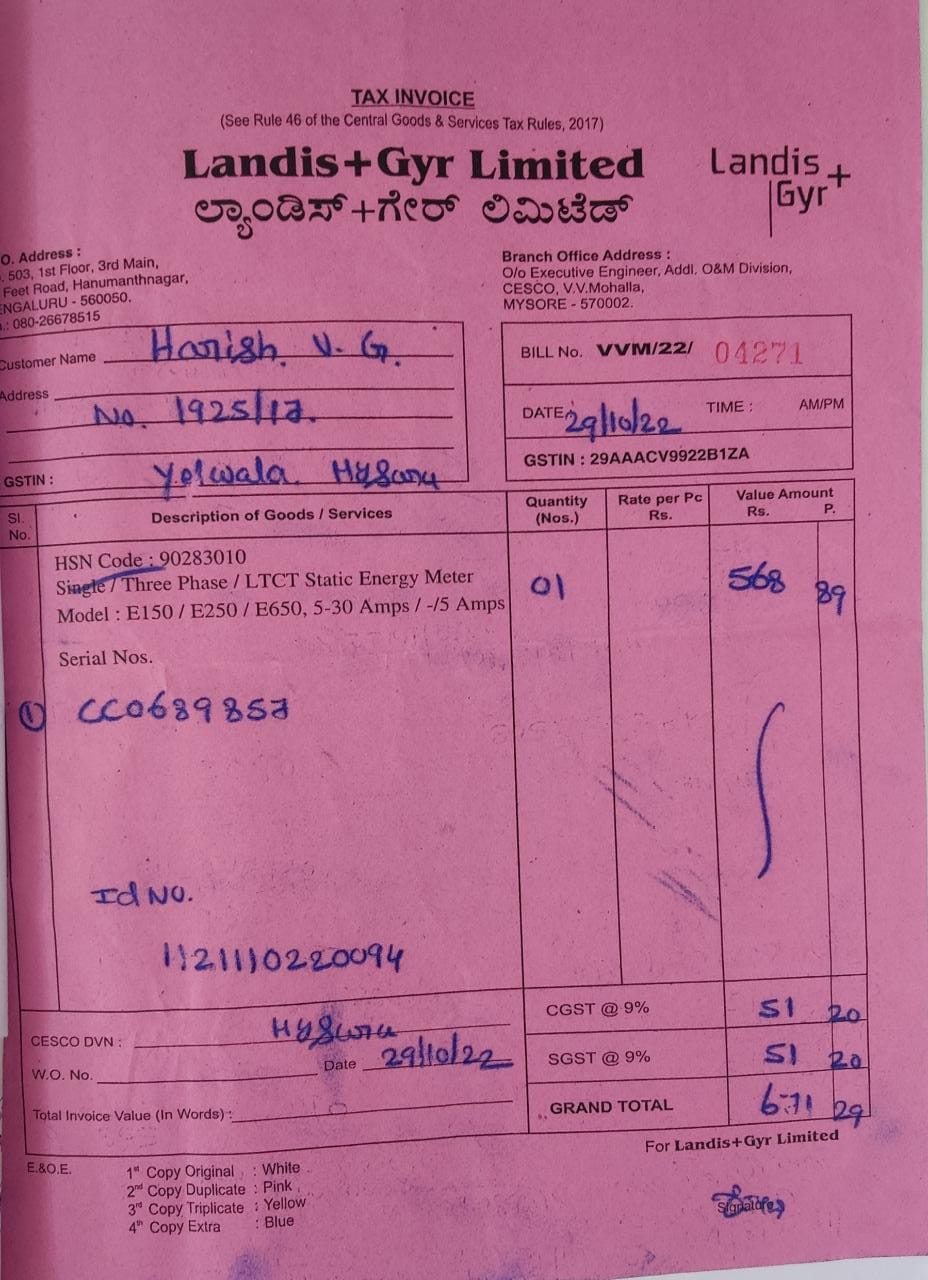 TAX INVOICE
(See Rule 46 of the Central Goods & Services Tax Rules, 2017)
Landis+Gyr Limited
Landis
Gyr+
ಲ್ಯಾಂಡಿಸ್+ಗೇರ್ ಲಿಮಿಟೆಡ್
O. Address :
503, 1st Floor, 3rd Main,
Feet Road, Hanumanthnagar,
ENGALURU - 560050.
.: 080-26678515
Branch Office Address :
O/o Executive Engineer, Addl. O&M Division,
CESCO, V.V.Mohalla,
MYSORE - 570002.
Customer Name Harish. V. G.
Address
No. 1925/17.
GSTIN : Yelwala Mysuru
BILL No. VVM/22/ 04271
DATE: 29/10/22 TIME : AM/PM
GSTIN : 29AAACV9922B1ZA
Sl. No. Description of Goods / Services Quantity (Nos.) Rate per Pc Rs. Value Amount Rs. P.
HSN Code : 90283010
Single / Three Phase / LTCT Static Energy Meter 01 568 89
Model : E150 / E250 / E650, 5-30 Amps / -/5 Amps
Serial Nos.
① CC0689857
Id No.
1121110220094
CESCO DVN : Mysuru
W.O. No. Date 29/10/22
Total Invoice Value (In Words) :
CGST @ 9% 51 20
SGST @ 9% 51 20
GRAND TOTAL 671 29
For Landis+Gyr Limited
E.&O.E.
1st Copy Original : White
2nd Copy Duplicate : Pink
3rd Copy Triplicate : Yellow
4th Copy Extra : Blue
Signatory